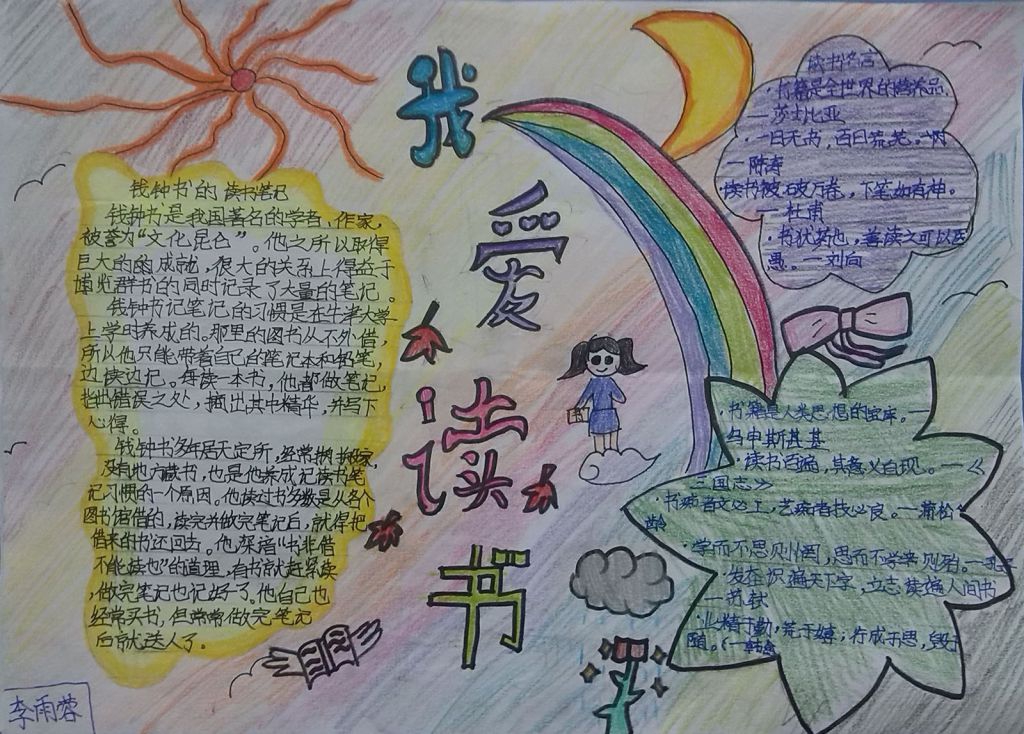 我爱读书
钱钟书的读书笔记
钱钟书是我国著名的学者、作家,
被誉为“文化昆仑”。他之所以取得
巨大的成就,很大的关系上得益于
博览群书的同时记录了大量的笔记。
钱钟书记笔记的习惯是在牛津大学
上学时养成的。那里的图书从不外借,
所以他只能带着自己的笔记本和铅笔,
边读边记。每读一本书,他都做笔记,
指出错误之处,摘出其中精华,并写下
心得。
钱钟书多年居无定所,经常搬家,
没有地方藏书,也是他养成记读书笔
记习惯的一个原因。他读过书多数是从各个
图书馆借的,读完并做完笔记后,就得把
借来的书还回去。他深谙“书非借
不能读也”的道理,有书就赶紧读
,做完笔记也记好了。他自己也
经常买书,但常常做完笔记
后就送人了。
李雨蓉
读书名言
·书籍是全世界的营养品
—莎士比亚
·一日无书,百日荒芜。
—陈寿
读书被破万卷,下笔如有神。
—杜甫
·书犹药也,善读之可以医
愚。—刘向
·书籍是人类思想的宝库。—
乌申斯基
·读书百遍,其意义自现。—《
三国志》
·书痴者文必工,艺痴者技必良。—蒲松
龄
·学而不思则罔,思而不学则殆。—孔子
·发奋识遍天下字,立志读遍人间书
—苏轼
·业精于勤,荒于嬉;行成于思,毁于
随。(—韩愈